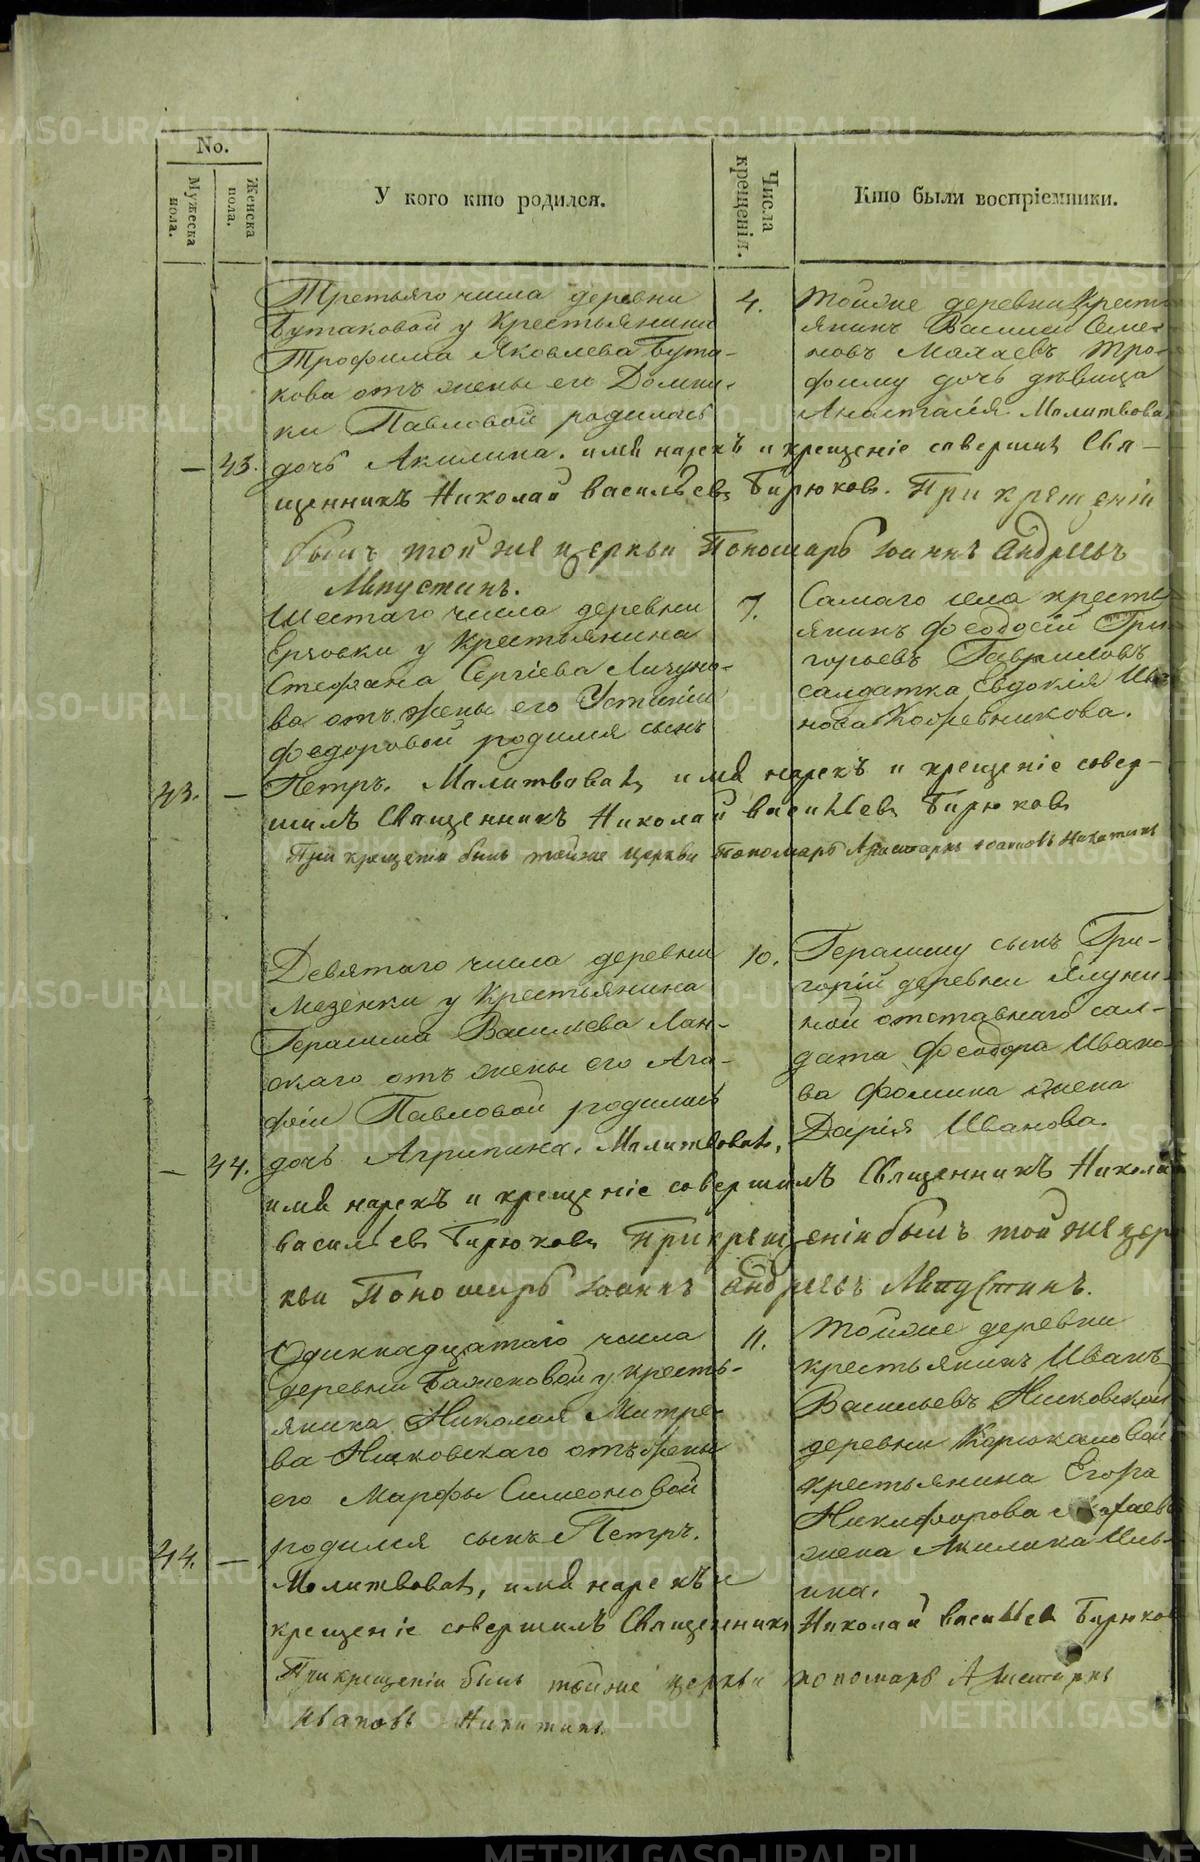 No.
Мужеска пола.
Женска пола.
У кого кто родился.
Числа крещенія.
Кто были воспріемники.
Третьяго числа деревни
Бутаковой у крестьянина
Трофима Яковлева Бута-
кова отъ жены его Домни-
ки Павловой родилась
— 43. дочь Акилина. имя нарекъ и крещеніе совершилъ Свя-
щенникъ Николай Васильевъ Бирюковъ. При крещеніи
былъ той же церкви Пономарь Іоаннъ Андреевъ
4.
Тойже деревни крестъ
янинъ Василій Семе-
новъ Трo-
фиму дочь дѣвица
Анастасія. Молитвова
Шестаго числа деревни
Ерзовки у крестьянина
Стефана Сергіева
ва отъ жены его Устиніи
Федоровой родился сынъ
43. — Петръ. Молитвовалъ, имя нарекъ и крещеніе совер-
шилъ Священникъ Николай Васильевъ Бирюковъ
При крещеніи былъ тойже церкви Пономарь Аристархъ Іоанновъ Никитинъ
7.
Самаго села кресть
янинъ Феодосій Гри-
горьевъ Гавриловъ
салдатка Евдокія Ива
нова
Девятаго числа деревни
Мезенки у крестьянина
Герасима Васильева Лан-
скаго отъ жены его Ага-
фіи Павловой родилась
— 44. дочь Агрипина. Молитвовалъ,
имя нарекъ и крещеніе совершилъ Священникъ Николай
Васильевъ Бирюковъ При крещеніи былъ той же цер
кви Пономарь Іоаннъ Андреевъ
10.
Герасиму сынъ Гри-
горій деревни Ялуни-
ной отставнаго сал-
дата Феодора Ивано-
ва Фомина жена
Дарія Иванова.
Одиннадцатаго числа
деревни Баженовой у кресть-
янина Николая Митре-
ва отъ жены
его Марфы Симеоновой
родился сынъ Петръ.
44. — Молитвовалъ, имя нарекъ и
крещеніе совершилъ Священникъ Николай Васильевъ Бирюков
При крещеніи былъ тойже церкви пономарь Аристархъ
Ивановъ Никитинъ.
11.
Тойже деревни
крестьянинъ Иванъ
Васильевъ
деревни
крестьянина Егора
Никифорова
жена Акилина Иль-
ина.
METRIKI.GASO-URAL.RU